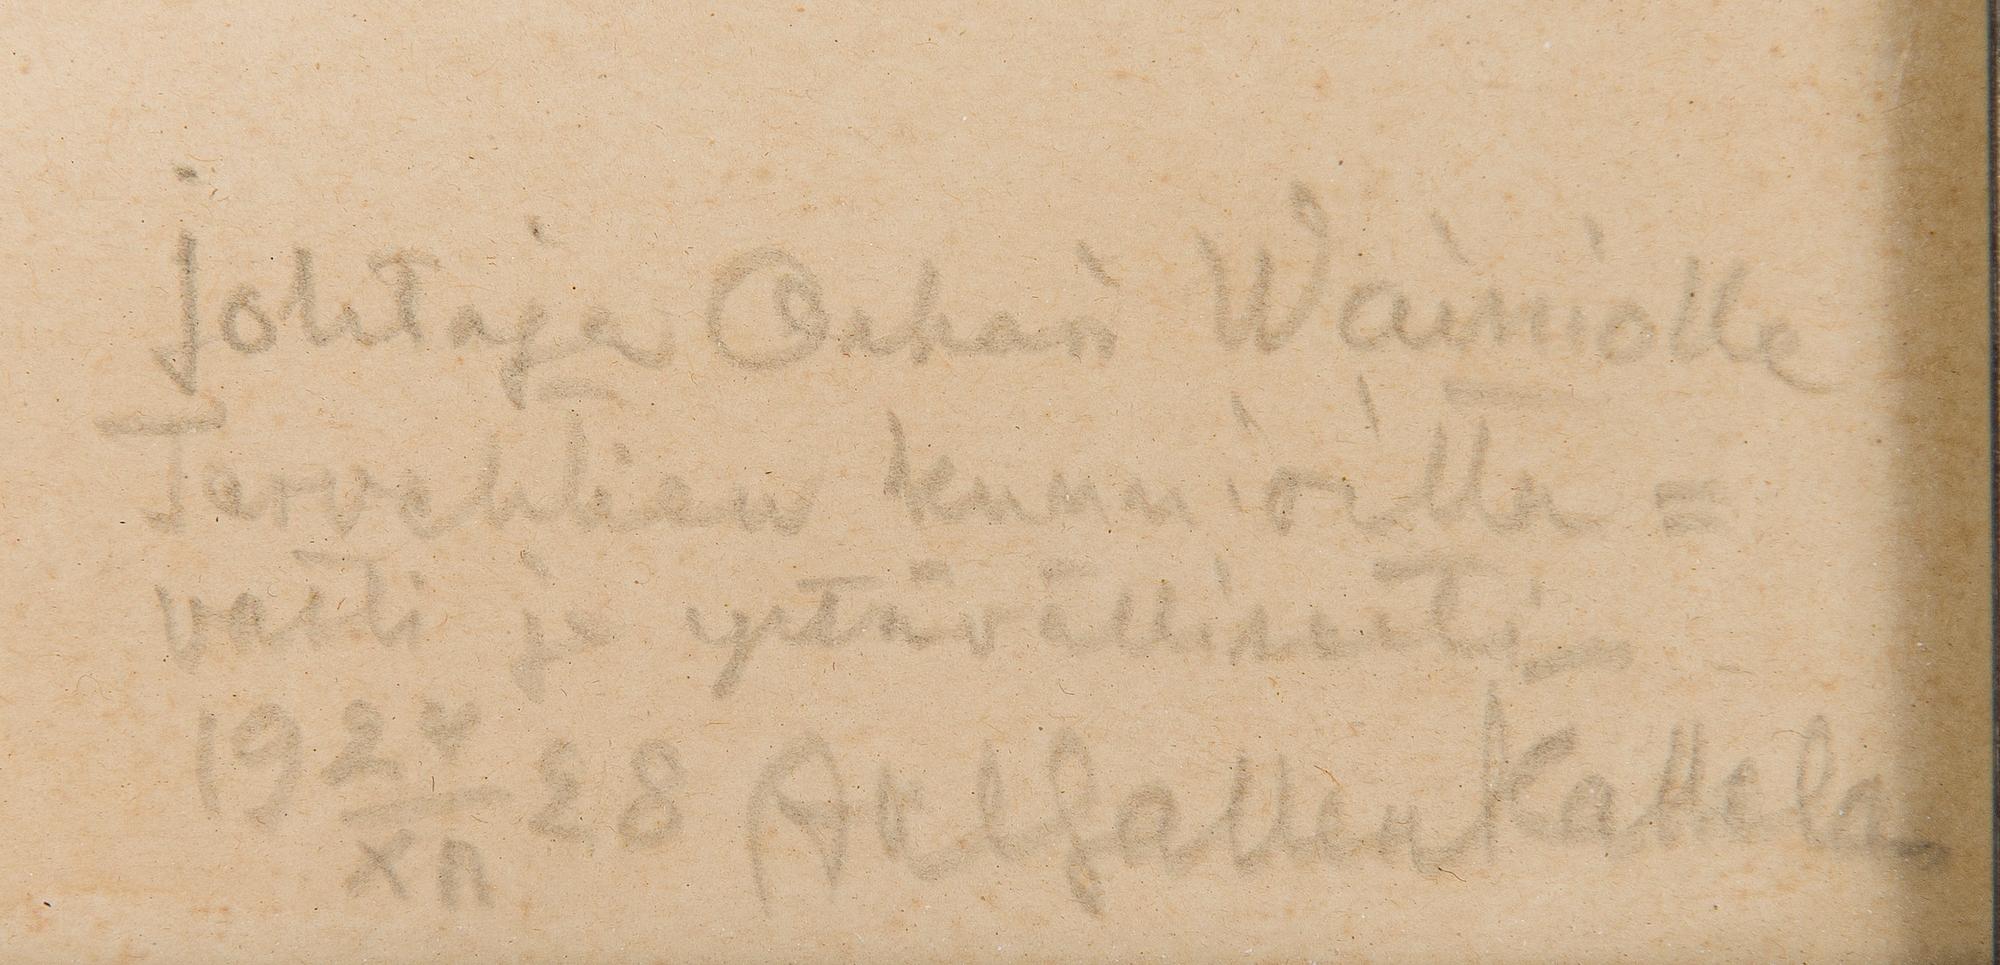 Johtaja Oskari Wainiolle
Tervehtien kunnioitta=
vasti ja ystävällisesti
19 24/XII 28 Axel Gallen Kallela